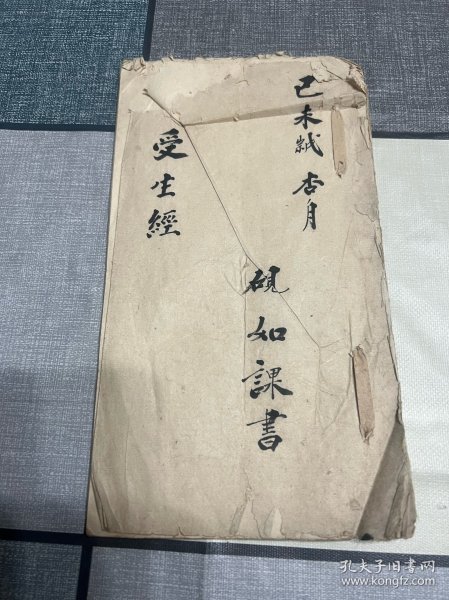 己未歲杏月
硯如課書
受生經
孔夫子旧书网
www.kongfz.com